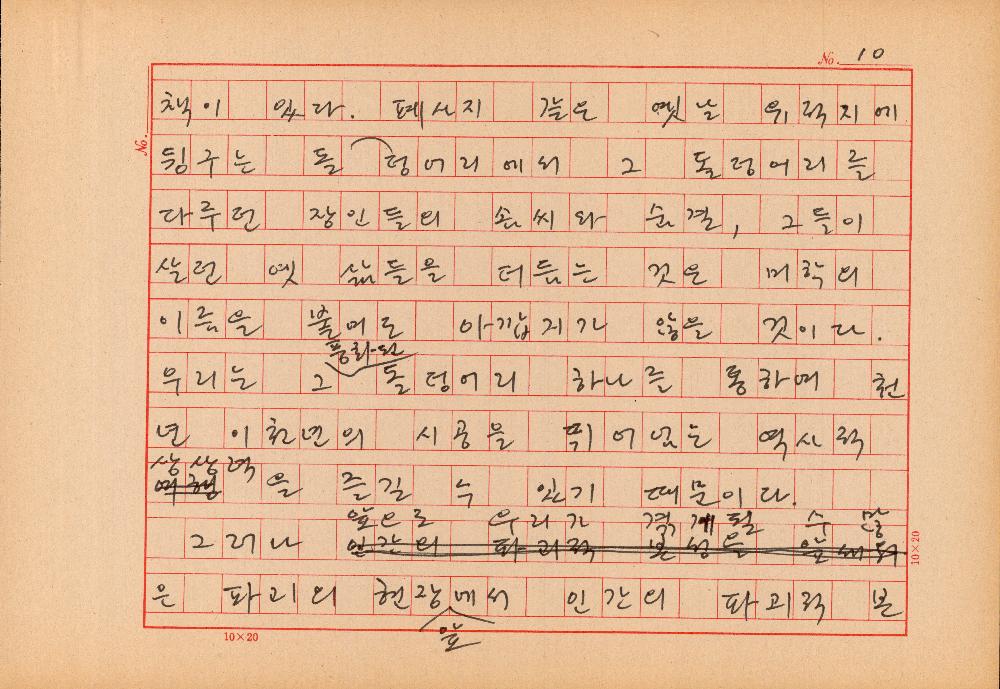 No. 10
책이 있다. 폐사지 같은 옛날 유적지에
뒹구는 돌덩어리에서 그 돌덩어리를
다루던 장인들의 솜씨와 숨결, 그들이
살던 옛 삶들을 더듬는 것은 미학의
이름을 붙여도 아깝지가 않을 것이다.
풍화된
우리는 그 돌덩어리 하나를 통하여 천
년 이천년의 시공을 뛰어넘는 역사적
상상력
여행을 즐길 수 있기 때문이다.
앞으로 우리가 겪게 될 수많
그러나 인간의 파괴적 본성을 앞세워
은 파괴의 현장에서 인간의 파괴적 본
앞
10×20
10×20
No.